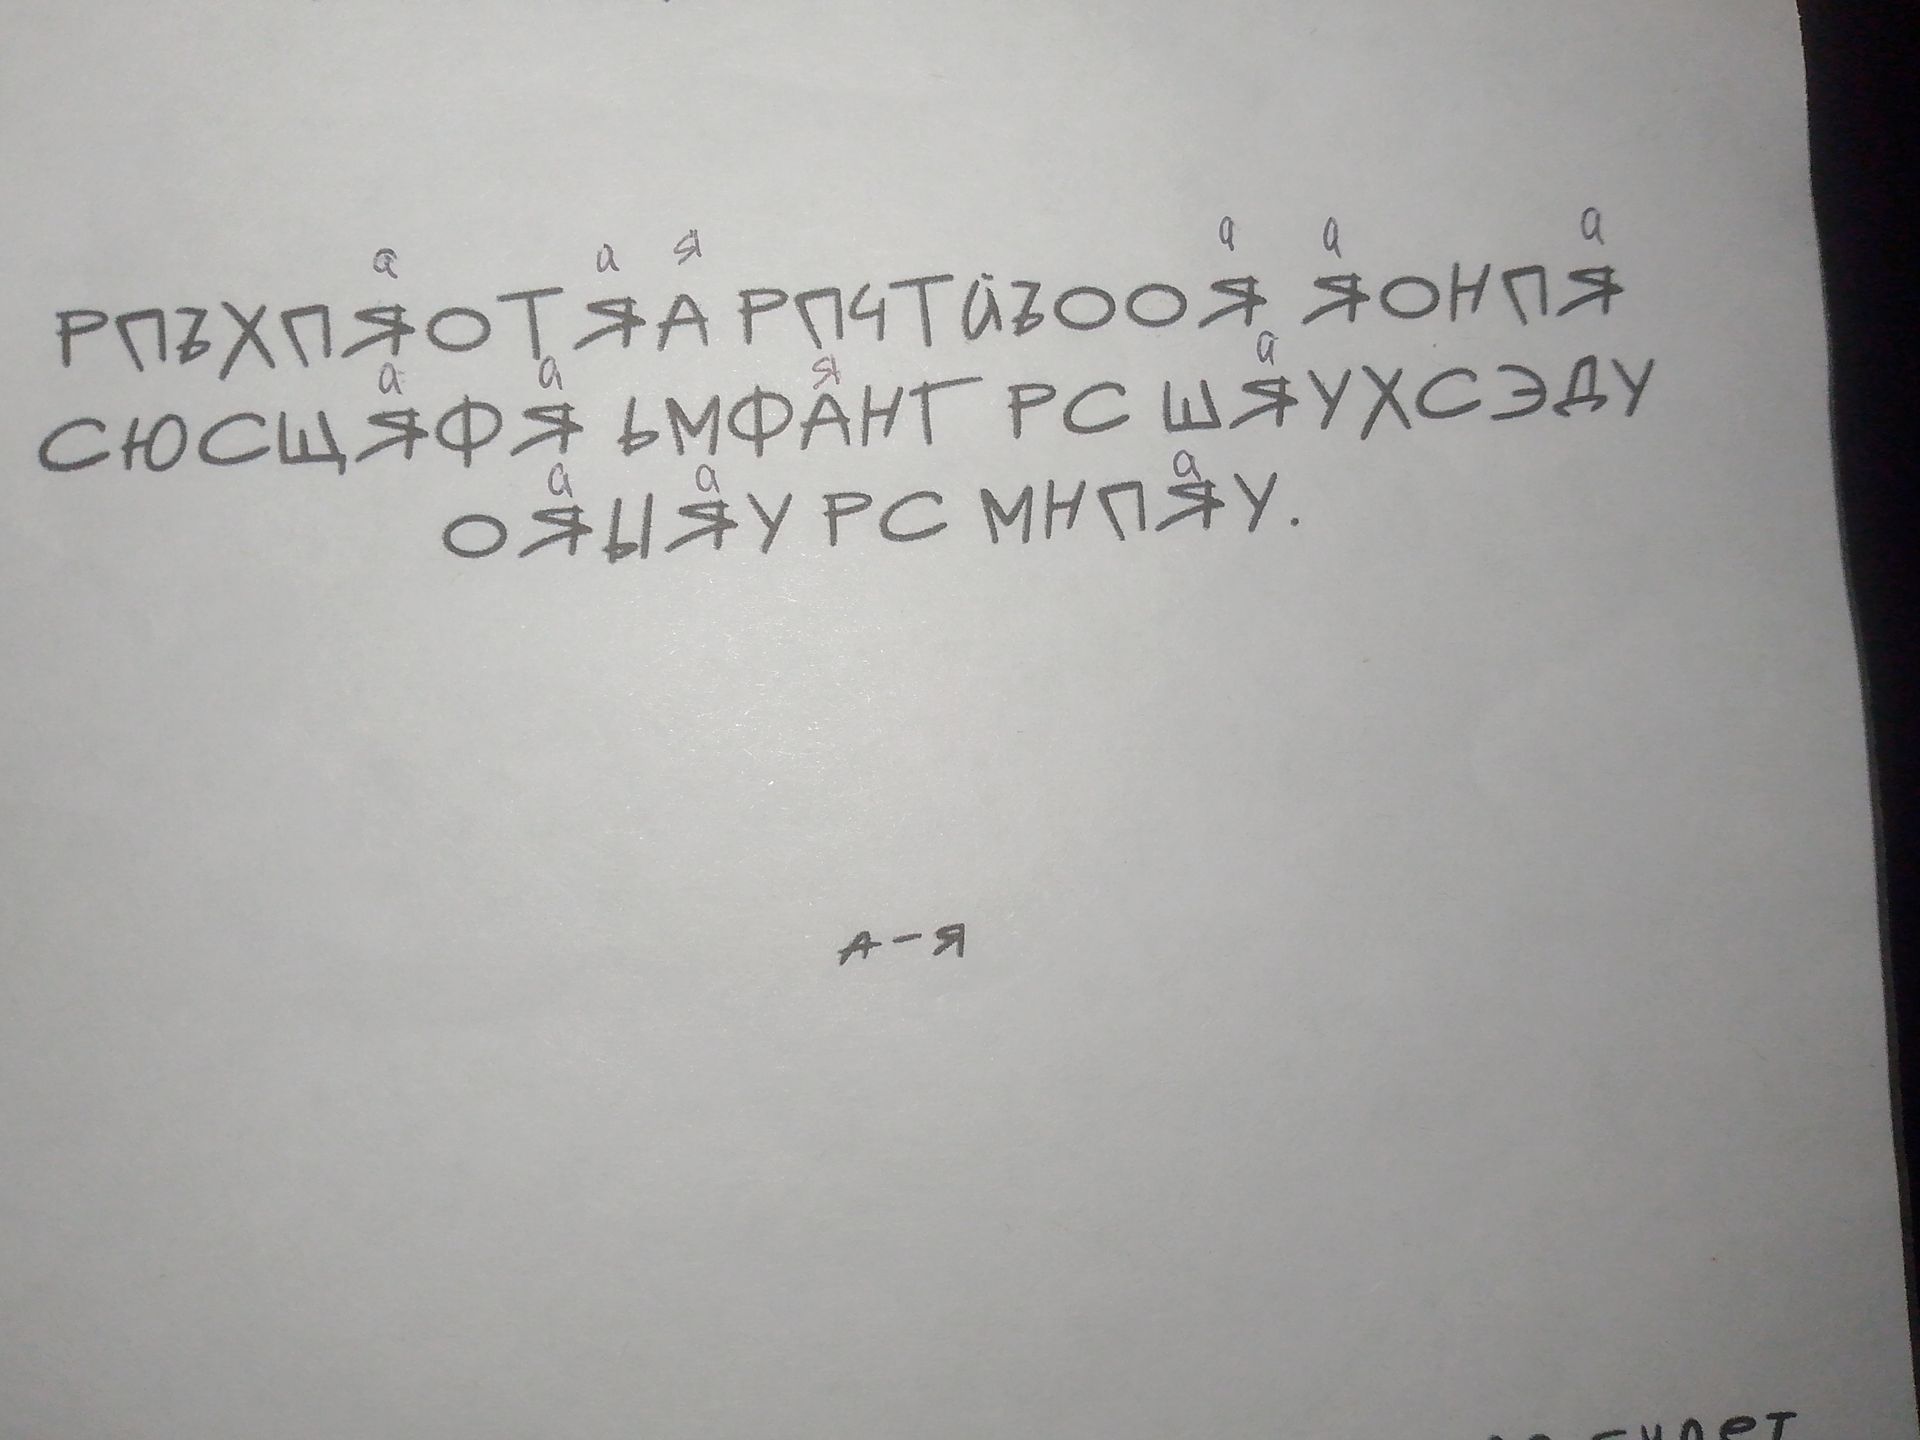 а а я а а а
РПЪХПЯОТЯА РПЧТЙЪООЯ ЯОНПЯ
а а я а
СЮСЩЯФЯ ЬМФАНГ РС ШЯУХСЭДУ
а а а
ОЯЫЯУ РС МНПЯУ.
А-Я